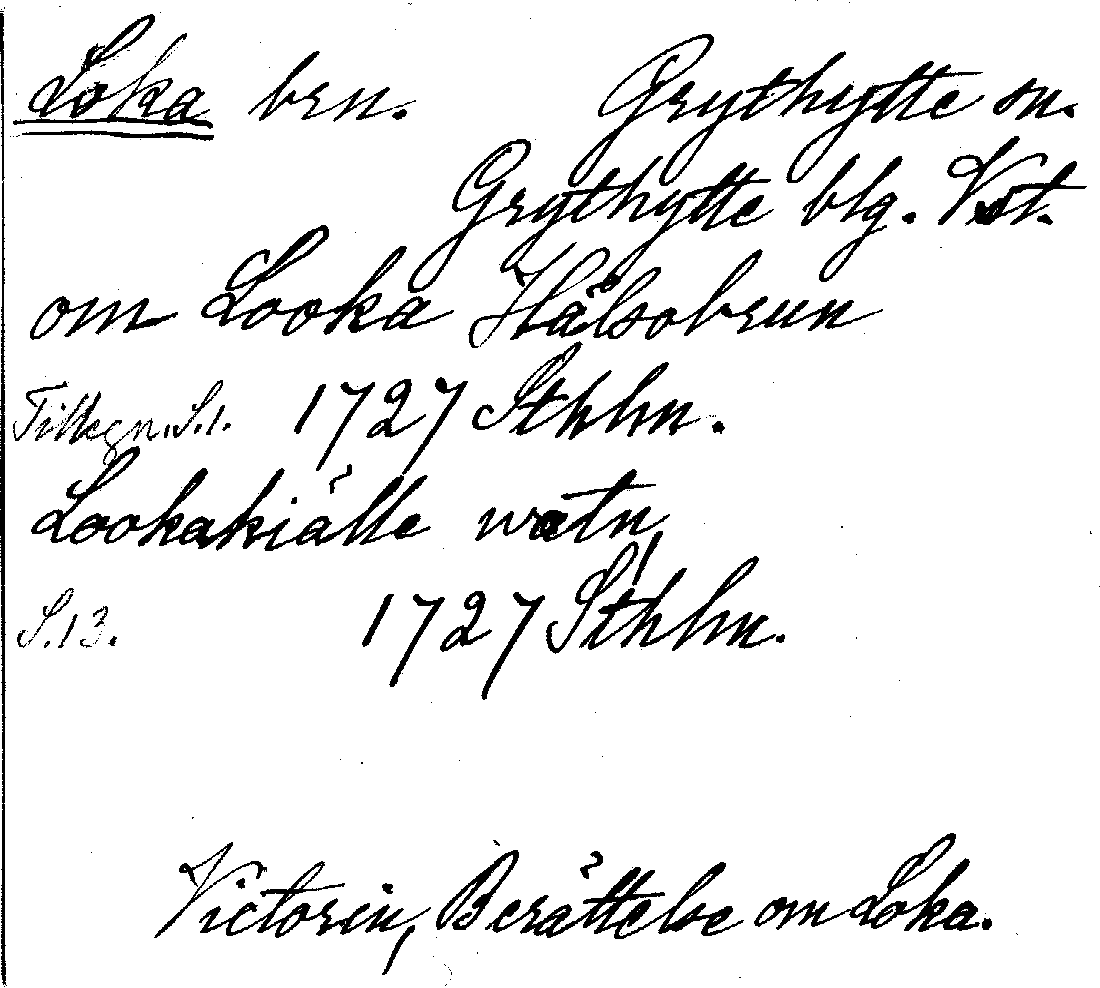 Loka brn. Grythytte sn.
Grythytte blg. Vst.
om Looka Hälsobrun
Tillegn. S.1. 1727 Sthlm.
Lookakiälle watn,
S.13. 1727 Sthlm.
Victorin, Berättelse om Loka.